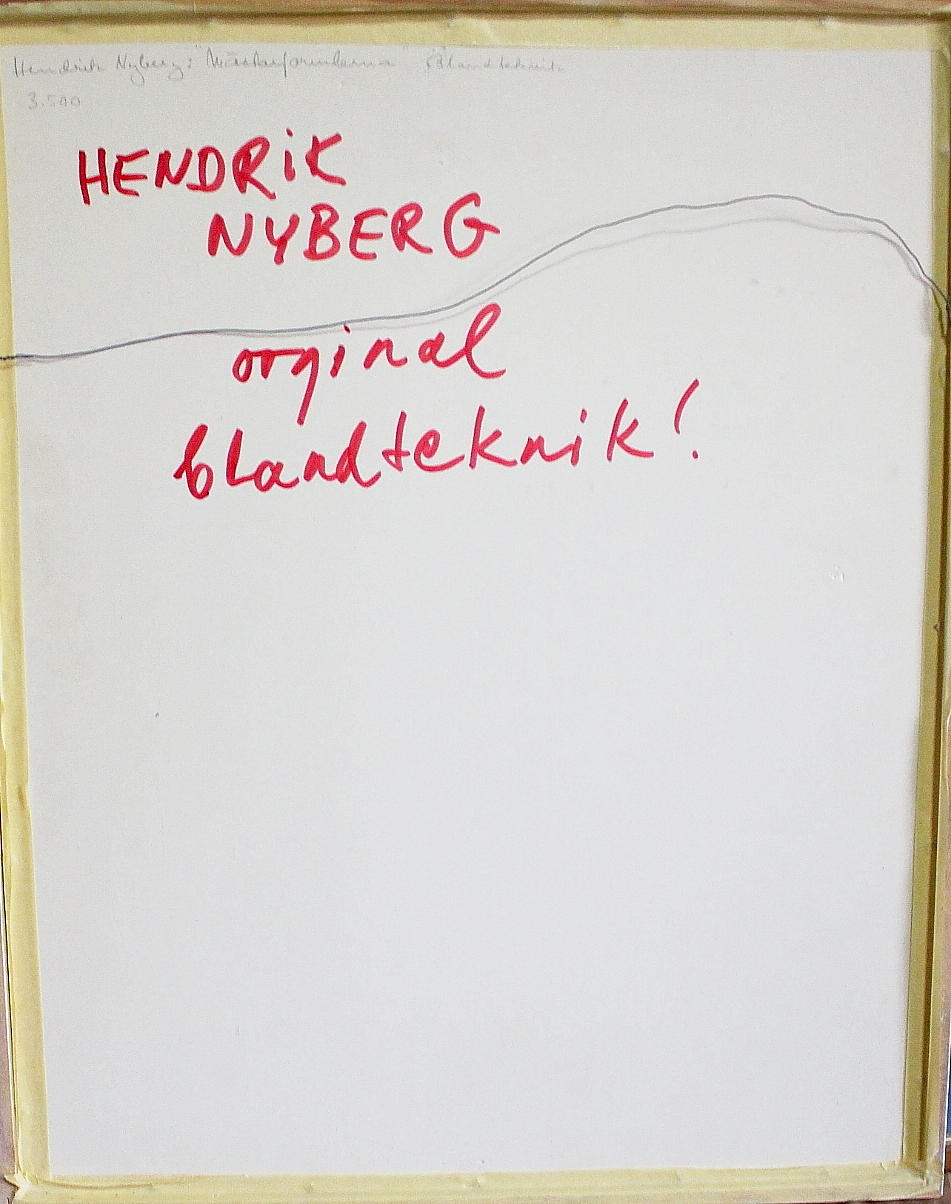 Hendrik Nyberg: Blandteknik
3.500
HENDRiK
NYBERG
orginal
blandteknik!